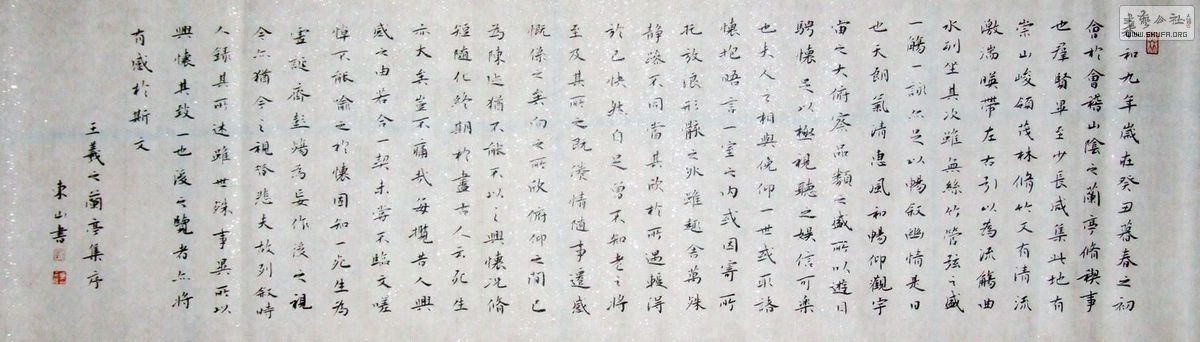 永和九年歲在癸丑暮春之初
會於會稽山陰之蘭亭脩禊事
也羣賢畢至少長咸集此地有
崇山峻領茂林脩竹又有清流
激湍暎帶左右引以為流觴曲
水列坐其次雖無絲竹管弦之盛
一觴一詠亦足以暢敘幽情是日
也天朗氣清惠風和暢仰觀宇
宙之大俯察品類之盛所以遊目
騁懷足以極視聽之娛信可樂
也夫人之相與俛仰一世或取諸
懷抱晤言一室之內或因寄所
託放浪形骸之外雖趣舍萬殊
靜躁不同當其欣於所遇輒得
於己快然自足曾不知老之將
至及其所之既惓情隨事遷感
慨係之矣向之所欣俯仰之間已
為陳迹猶不能不以之興懷況脩
短隨化終期於盡古人云死生
亦大矣豈不痛哉每攬昔人興
感之由若合一契未嘗不臨文嗟
悼不能喻之於懷固知一死生為
虛誕齊彭殤為妄作後之視
今亦猶今之視昔悲夫故列敘時
人錄其所述雖世殊事異所以
興懷其致一也後之覽者亦將
有感於斯文
王羲之蘭亭集序
東山書
書藝公社
WWW.SHUFA.ORG